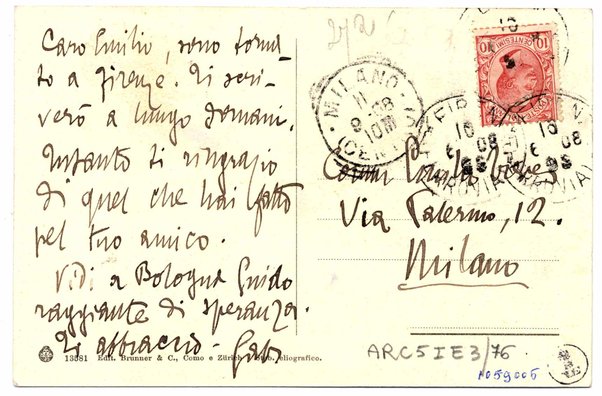 Caro Emilio, sono torna-
to a Firenze. Ti scri-
verò a lungo domani.
Intanto ti ringrazio
di quel che hai fatto
pel tuo amico.
Vidi a Bologna Guido
raggiante di speranza.
Ti abbraccio
13581 Edit. Brunner & C., Como e Zürich eliografico.
MILANO
11
8-08
10M
10 CENTESIMI 10
FIRENZE
08
Via Palermo, 12.
Milano
ARC5IE3/76
1059005